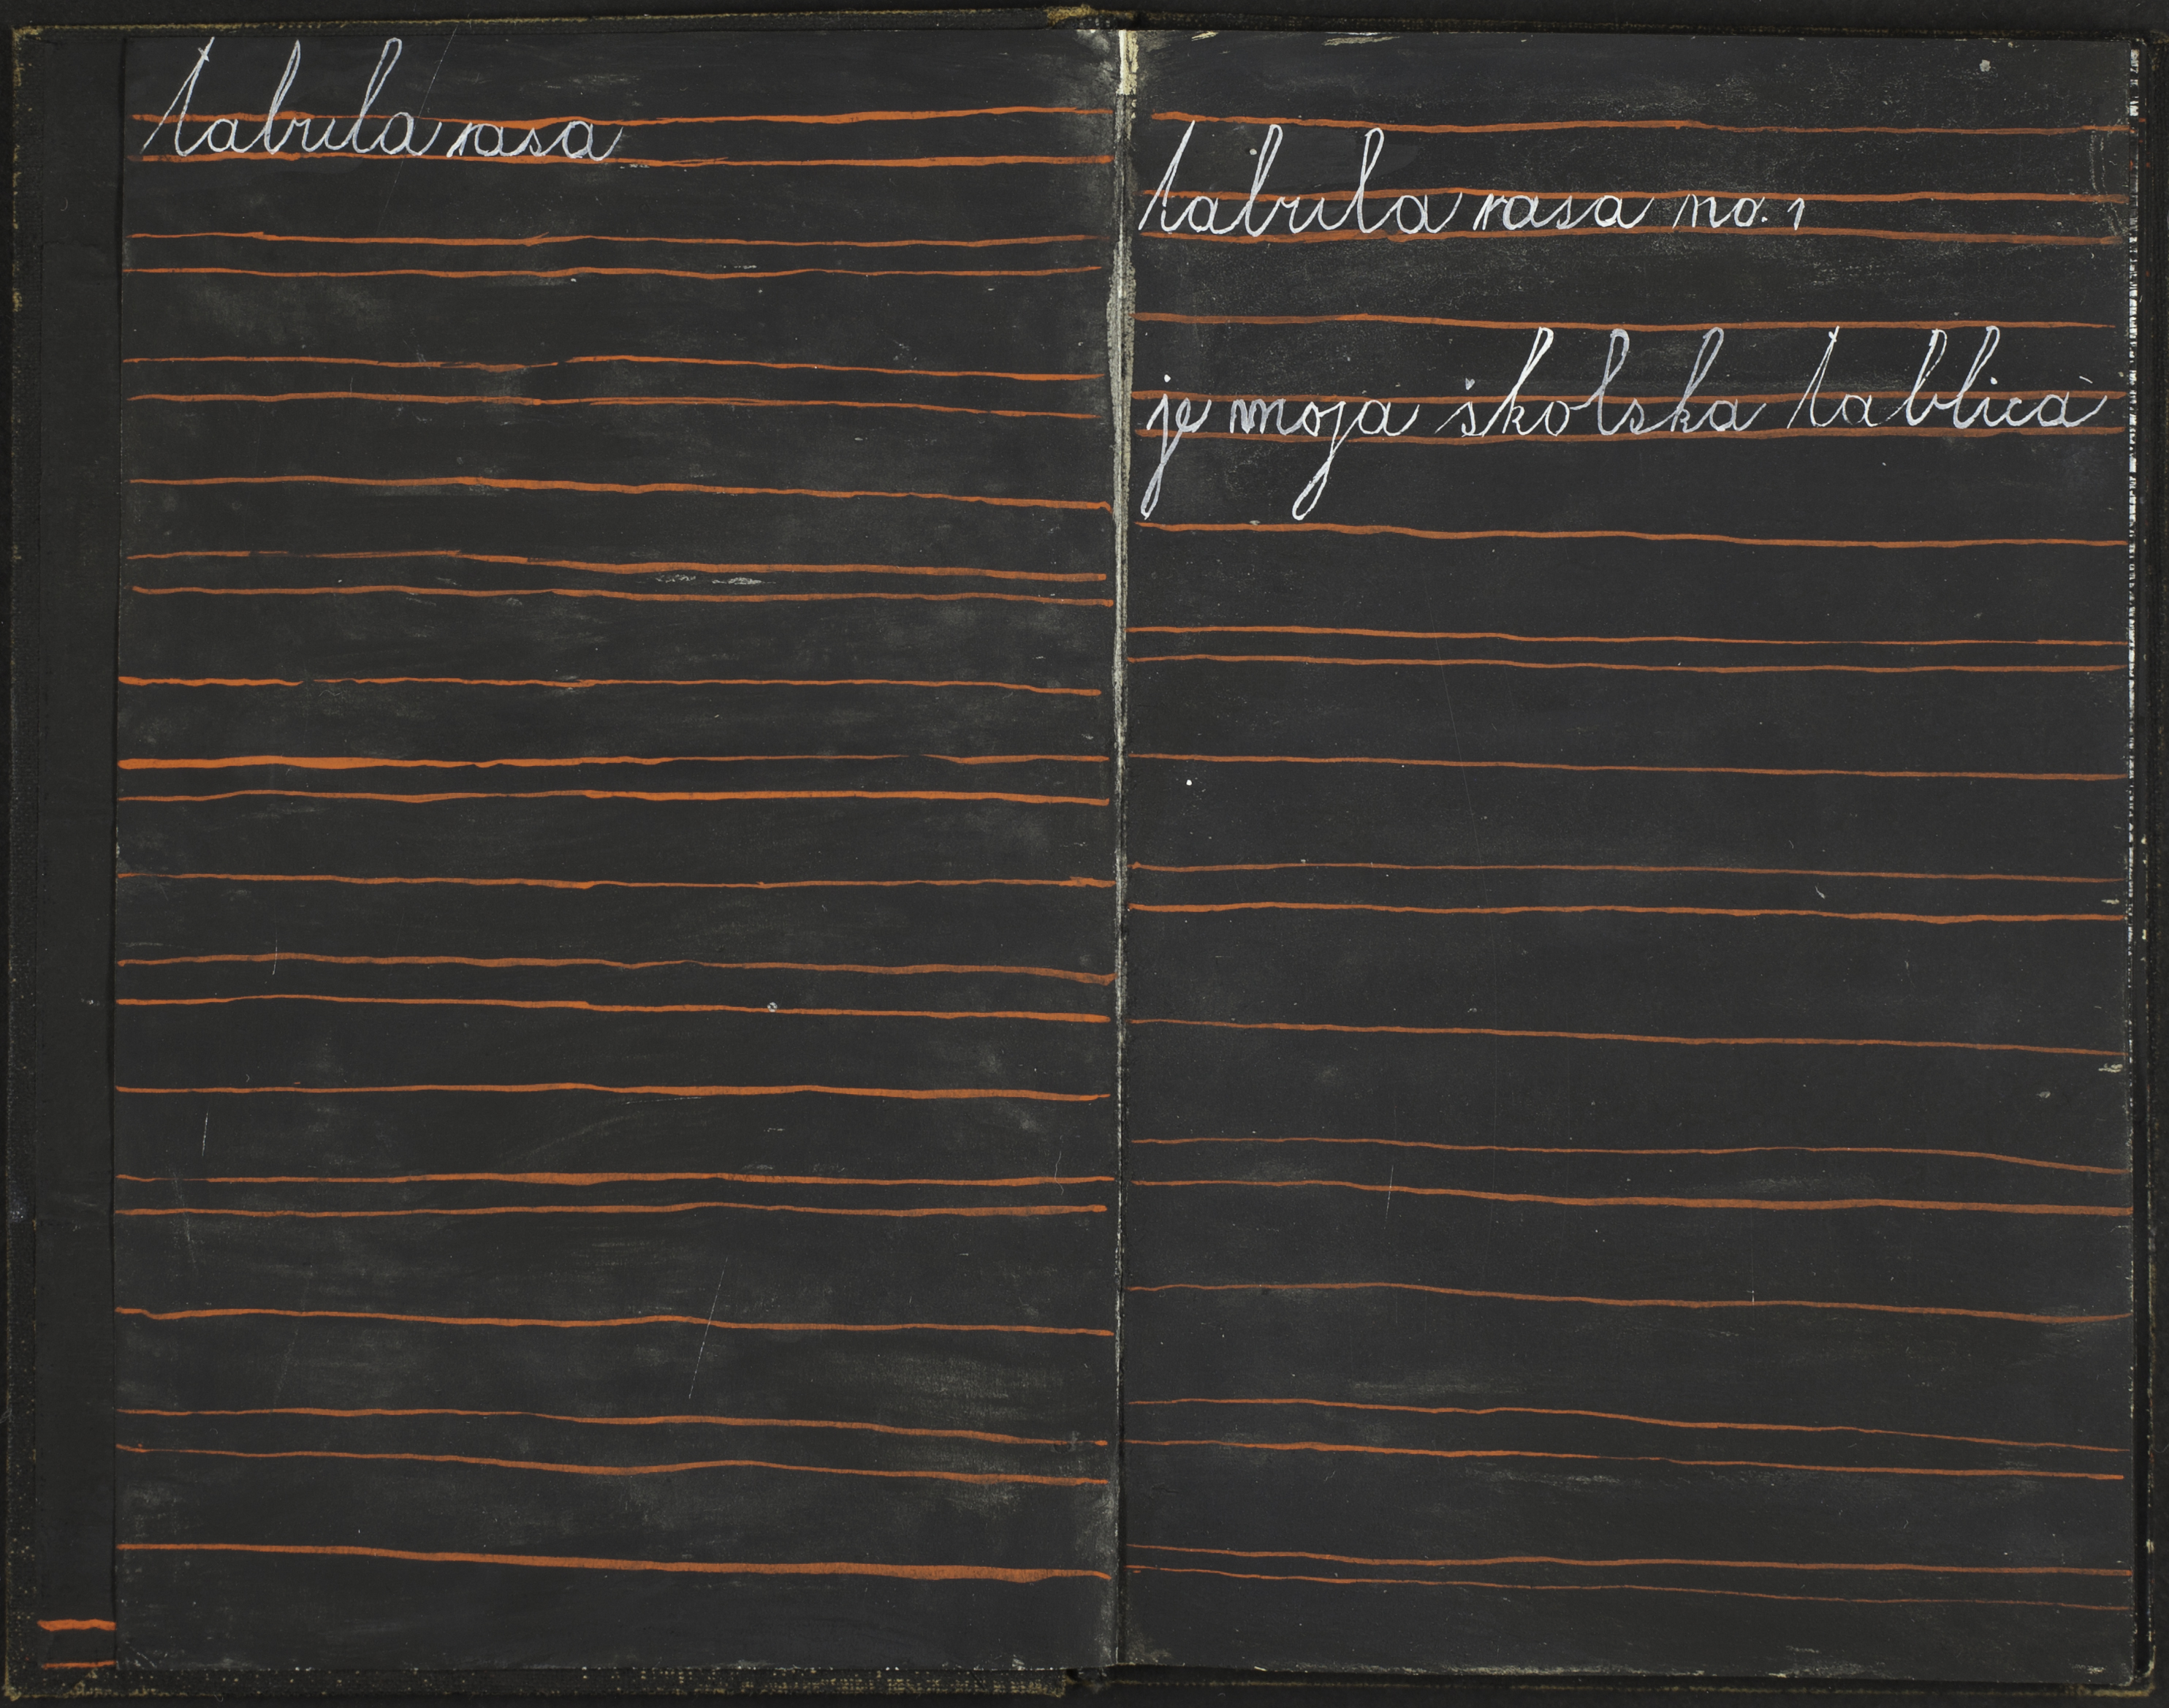 tabula rasa
tabula rasa no. 1
je moja školska tablica